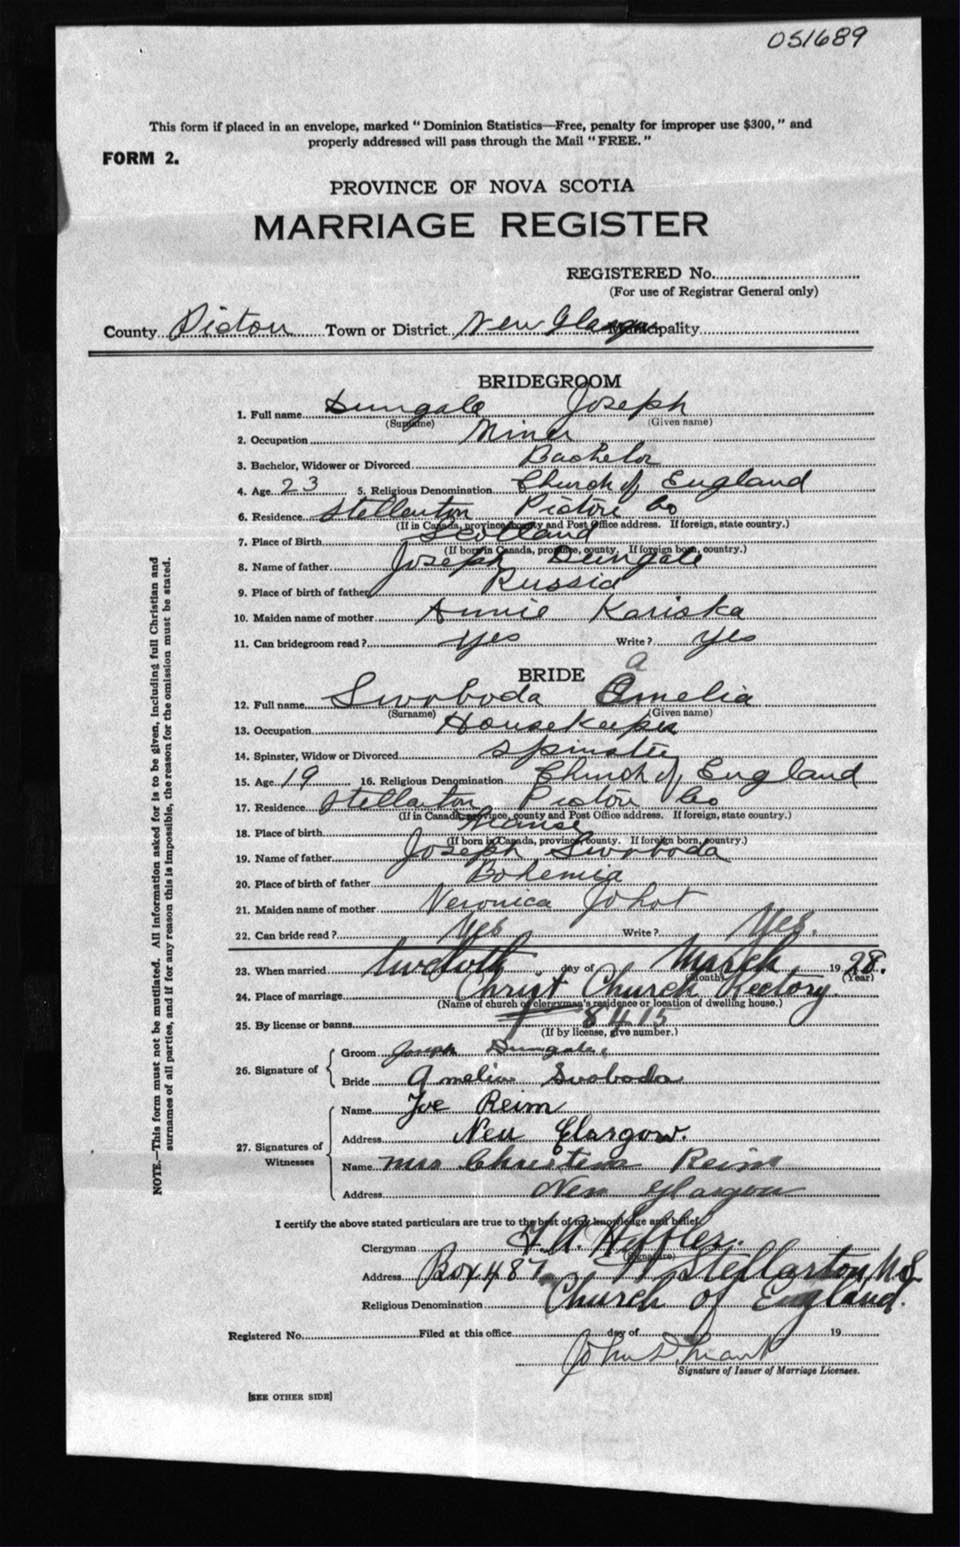 051689
This form if placed in an envelope, marked "Dominion Statistics—Free, penalty for improper use $300," and
properly addressed will pass through the Mail "FREE."
FORM 2.
PROVINCE OF NOVA SCOTIA
MARRIAGE REGISTER
REGISTERED No.
(For use of Registrar General only)
County Pictou Town or District New Glasgow Municipality
BRIDEGROOM
1. Full name Dungale Joseph
(Surname) (Given name)
2. Occupation Miner
3. Bachelor, Widower or Divorced Bachelor
4. Age 23 5. Religious Denomination Church of England
6. Residence Stellarton Pictou Co
(If in Canada, province, county and Post Office address. If foreign, state country.)
7. Place of Birth Scotland
(If born in Canada, province, county. If foreign born, country.)
8. Name of father Joseph Dungale
9. Place of birth of father Russia
10. Maiden name of mother Annie Kariska
11. Can bridegroom read? yes Write? yes
BRIDE a
12. Full name Swoboda Amelia
(Surname) (Given name)
13. Occupation Housekeeper
14. Spinster, Widow or Divorced Spinster
15. Age 19 16. Religious Denomination Church of England
17. Residence Stellarton Pictou Co
(If in Canada, province, county and Post Office address. If foreign, state country.)
18. Place of birth
(If born in Canada, province, county. If foreign born, country.)
19. Name of father Joseph Swoboda
20. Place of birth of father Bohemia
21. Maiden name of mother Veronica
22. Can bride read? Yes Write? Yes.
23. When married twelvth day of March 1928.
(Month) (Year)
24. Place of marriage Christ Church Rectory.
(Name of church or clergyman's residence or location of dwelling house.)
25. By license or banns 8415
(If by license, give number.)
26. Signature of Groom Joseph Dungale
Bride Amelia Svoboda
27. Signatures of Witnesses
Name Joe Reim
Address New Glasgow.
Name Mrs Christena Reim
Address New Glasgow
I certify the above stated particulars are true to the best of my knowledge and belief.
Clergyman
(Signature)
Address Box 487 Stellarton N.S.
Religious Denomination Church of England.
Registered No. Filed at this office day of 19
Signature of Issuer of Marriage Licenses.
[SEE OTHER SIDE]
NOTE.—This form must not be mutilated. All information asked for is to be given, including full Christian and
surnames of all parties, and if for any reason this is impossible, the reason for the omission must be stated.